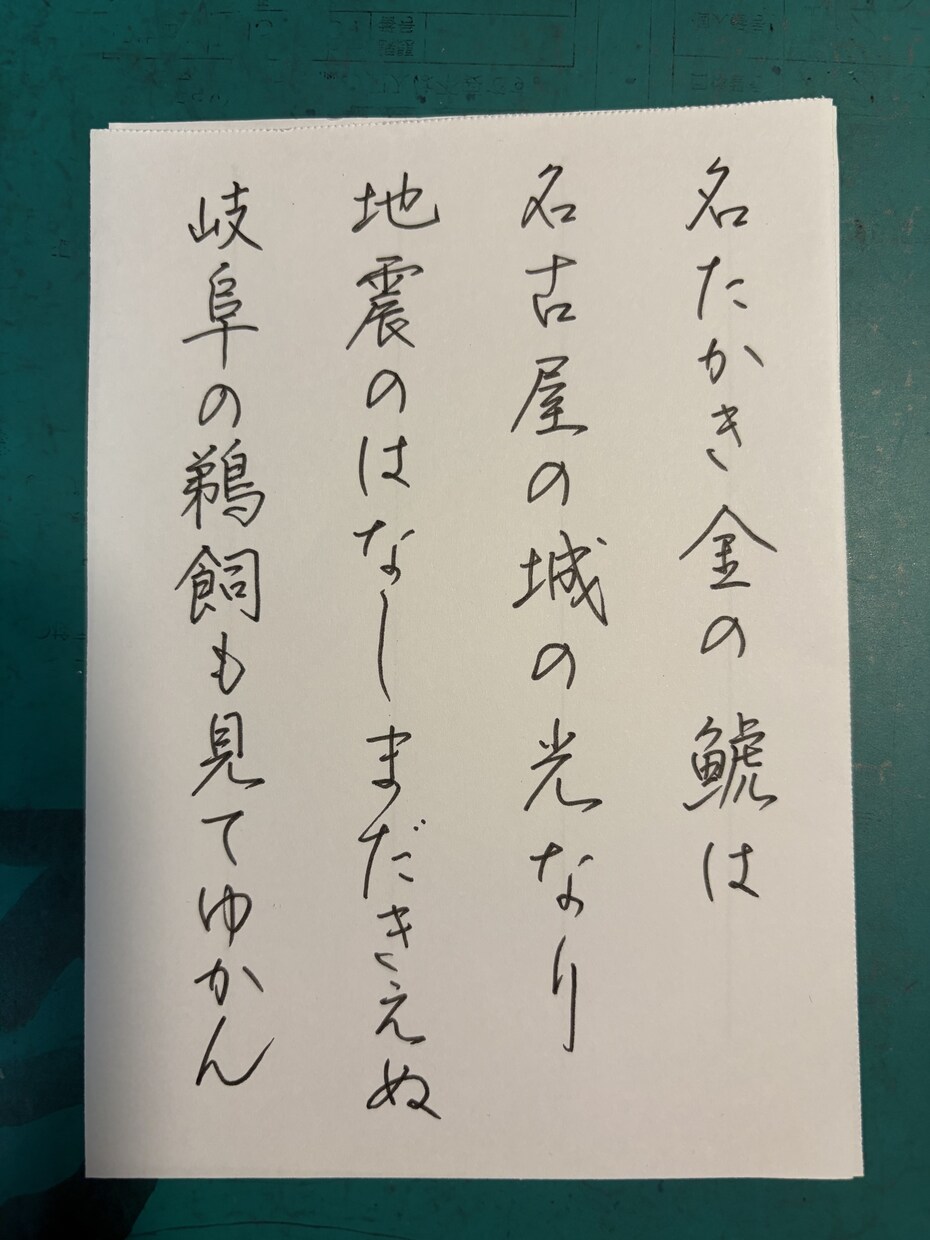 名たかき金の鯱は
名古屋の城の光なり
地震のはなしまだきえぬ
岐阜の鵜飼も見てゆかん